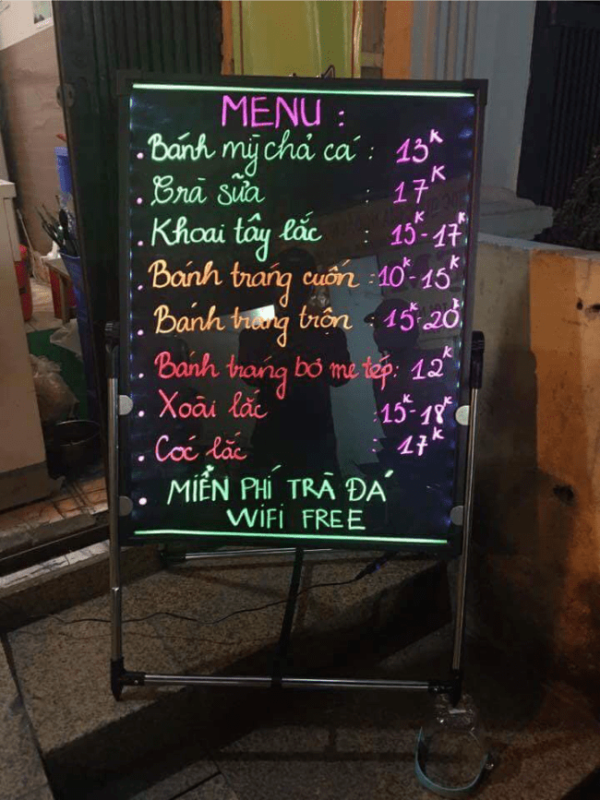 MENU :
. Bánh mỳ chả cá : 13k
. Trà sữa : 17k
. Khoai tây lắc : 15k-17k
. Bánh tráng cuốn : 10k-15k
. Bánh tráng trộn : 15k-20k
. Bánh tráng bơ me tép: 12k
. Xoài lắc : 15k-18k
. Cóc lắc : 17k
. MIỄN PHÍ TRÀ ĐÁ
WIFI FREE